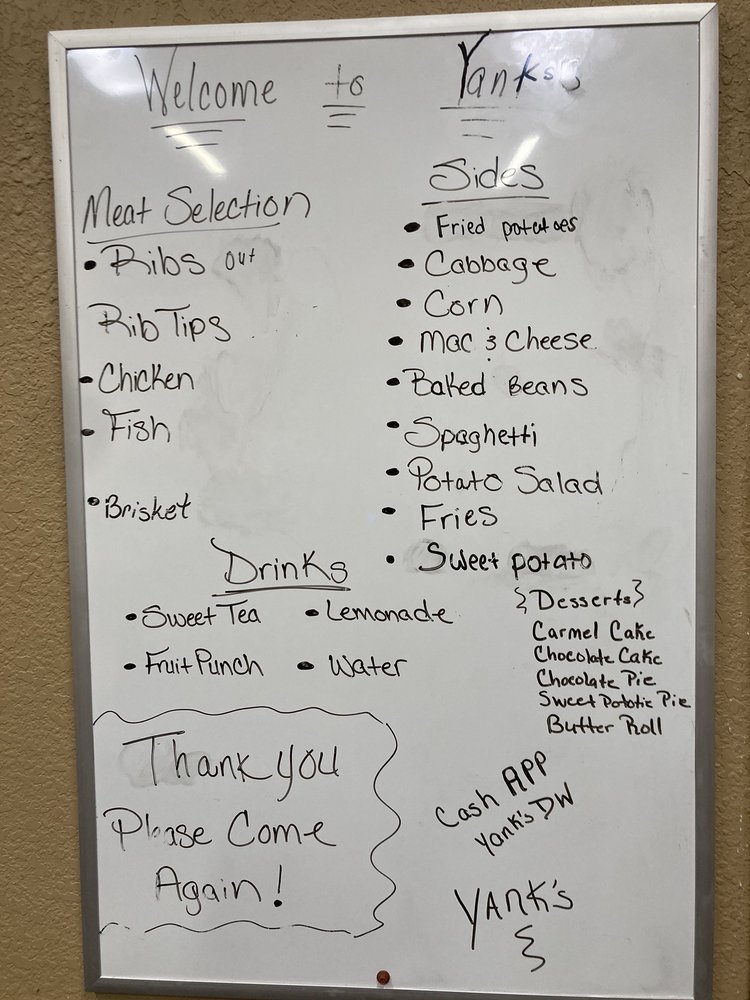 Welcome to Yank's
Meat Selection
• Ribs out
Rib Tips
• Chicken
• Fish
• Brisket
Sides
• Fried potatoes
• Cabbage
• Corn
• Mac & Cheese
• Baked Beans
• Spaghetti
• Potato Salad
• Fries
• Sweet potato
Drinks
• Sweet Tea • Lemonade
• Fruit Punch • Water
{Desserts}
Carmel Cake
Chocolate Cake
Chocolate Pie
Sweet Pototic Pie
Butter Roll
Thank you
Please Come
Again!
Cash APP
Yank's DW
YANK's